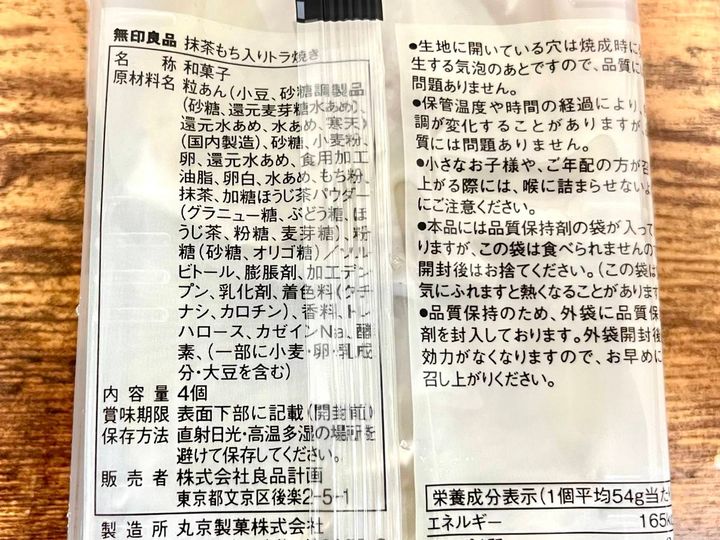 無印良品 抹茶もち入りトラ焼き
名 称 和菓子
原材料名 粒あん(小豆、砂糖調製品
(砂糖、還元麦芽糖水あめ)、
還元水あめ、水あめ、寒天)
(国内製造)、砂糖、小麦粉、
卵、還元水あめ、食用加工
油脂、卵白、水あめ、もち粉、
抹茶、加糖ほうじ茶パウダー
(グラニュー糖、ぶどう糖、ほ
うじ茶、粉糖、麦芽糖)、粉
糖(砂糖、オリゴ糖)／ソル
ビトール、膨脹剤、加工デン
プン、乳化剤、着色料(クチ
ナシ、カロチン)、香料、トレ
ハロース、カゼインNa、酵
素、(一部に小麦・卵・乳成
分・大豆を含む)
内 容 量 4個
賞味期限 表面下部に記載(開封前)
保存方法 直射日光・高温多湿の場所を
避けて保存してください。
販 売 者 株式会社良品計画
東京都文京区後楽2-5-1
製 造 所 丸京製菓株式会社
●生地に開いている穴は焼成時に
生する気泡のあとですので、品質に
問題ありません。
●保管温度や時間の経過により、
調が変化することがありますが、
質には問題ありません。
●小さなお子様や、ご年配の方が召
上がる際には、喉に詰まらせない
にご注意ください。
●本品には品質保持剤の袋が入って
りますが、この袋は食べられませんの
開封後はお捨てください。(この袋は
気にふれますと熱くなることがあります
●品質保持のため、外袋に品質保
剤を封入しております。外袋開封後
効力がなくなりますので、お早めに
召し上がりください。
栄養成分表示(1個平均54g当た
エネルギー 165k